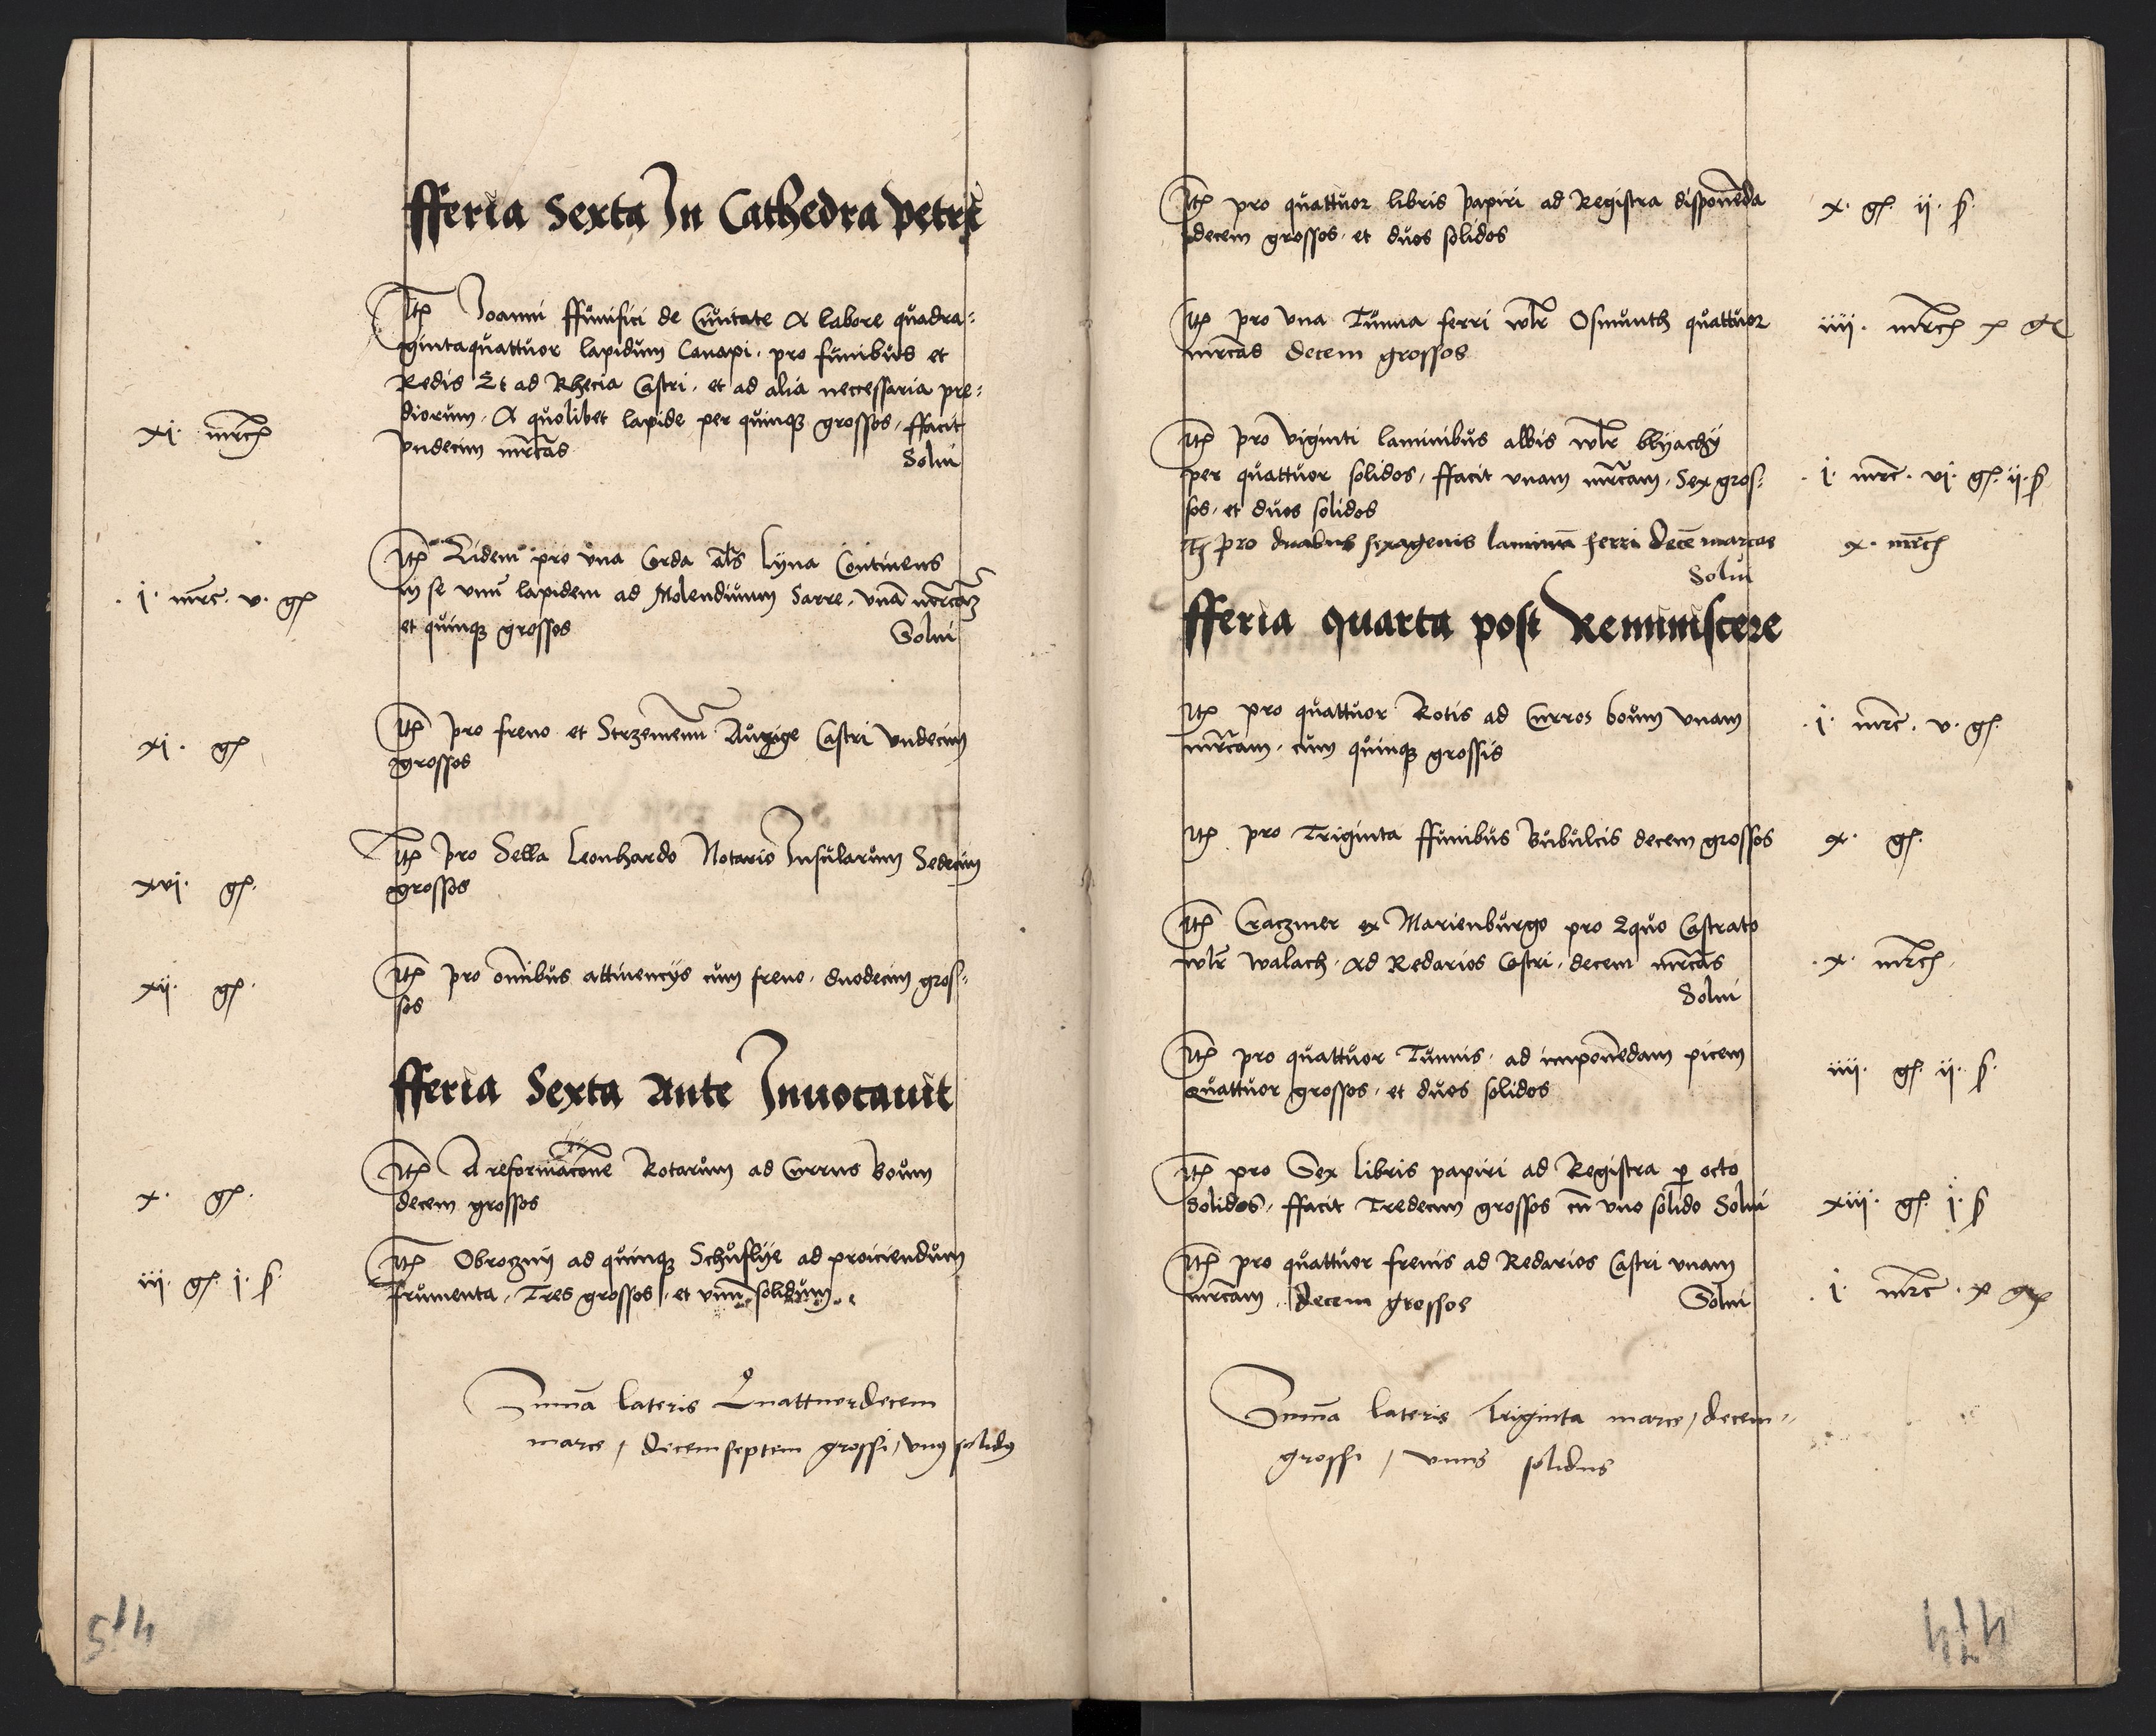 fferia Sexta In Cathedra petri
Itē Joanni ffunifici de Civitate A labore quadra:
gintaquattuor lapidum Canapi, pro funibus et
Redis Et ad Rhecia Castri, et ad alia neccessaria pre:
diorum, A quolibet lapide per quinque grossos, ffacit
xi. mrcs
Vndecim mrcas
Solui
Itē Eidem pro vna Corda als Lyna Continens
in se vnū lapidem ad Molendinum Sarre, vnā mrcam
.i. mrc. v. gs
et quinque grossos
Solui
Itē pro freno et Strzemenu Aurige Castri Vndecim
xi. gs
grossos
Itē pro Sella Leonhardo Notario Insularum Sedecim
xvi. gs.
grossos
Itē pro omībus attinencys cum freno, duodecim gros:
xii. gs.
sos
fferia Sexta Ante Inuocauit
Itē A reformacōne Rotarum ad Currus Boum
x. gs.
decem grossos
Itē Obrozny ad quinque Schuflye ad proiciendum
iii. gs. i. s.
frumenta, Tres grossos, et vnū solidum
Summa lateris Quattuordecem
marce / decemseptem grossi / vnus solidus
475
Itē pro quattuor libris papiri ad Registra disponēda
x. gs. ii. s.
decem grossos, et duos solidos
Itē pro vna Tunna ferri wlr Osmunth quattuor
iiii. mrcs x gs
mrcas decem grossos
Itē pro viginti laminibus albis wlr blyachy
per quattuor solidos, ffacit vnam mrcam, Sex gros:
.i. mrc. vi. gs. ii. s
sos, et duos solidos
Itē pro duabus sexagenis laminā ferri Decē marcas
x. mrcs
Solui
fferia quarta post Reminiscere
Itē pro quattuor Rotis ad Curros boum vnam
.i. mrc. v. gs.
mrcam, cum quinque grossis
Itē pro Triginta ffunibus Bubulcis decem grossos
x. gs.
Itē Craczmer ex Marienburgo pro Equo Castrato
wlr walach, Ad Redarios Castri, decem mrcas
.x. mrcs.
Solui
Itē pro quattuor Tunnis, ad imponēdam picem
iiii. gs. ii. s.
Quattuor grossos, et duos solidos
Itē pro Sex libris papiri ad Registra p octo
Solidos, ffacit Tredecim grossos cū vno solido Solui
xiii. gs. i. s
Itē pro quattuor frenis ad Redarios Castri vnam
mrcam. Decem grossos
Solui
.i. mrc. x gs
Summa lateris Triginta marce / decem
grossi / vnus solidus
474